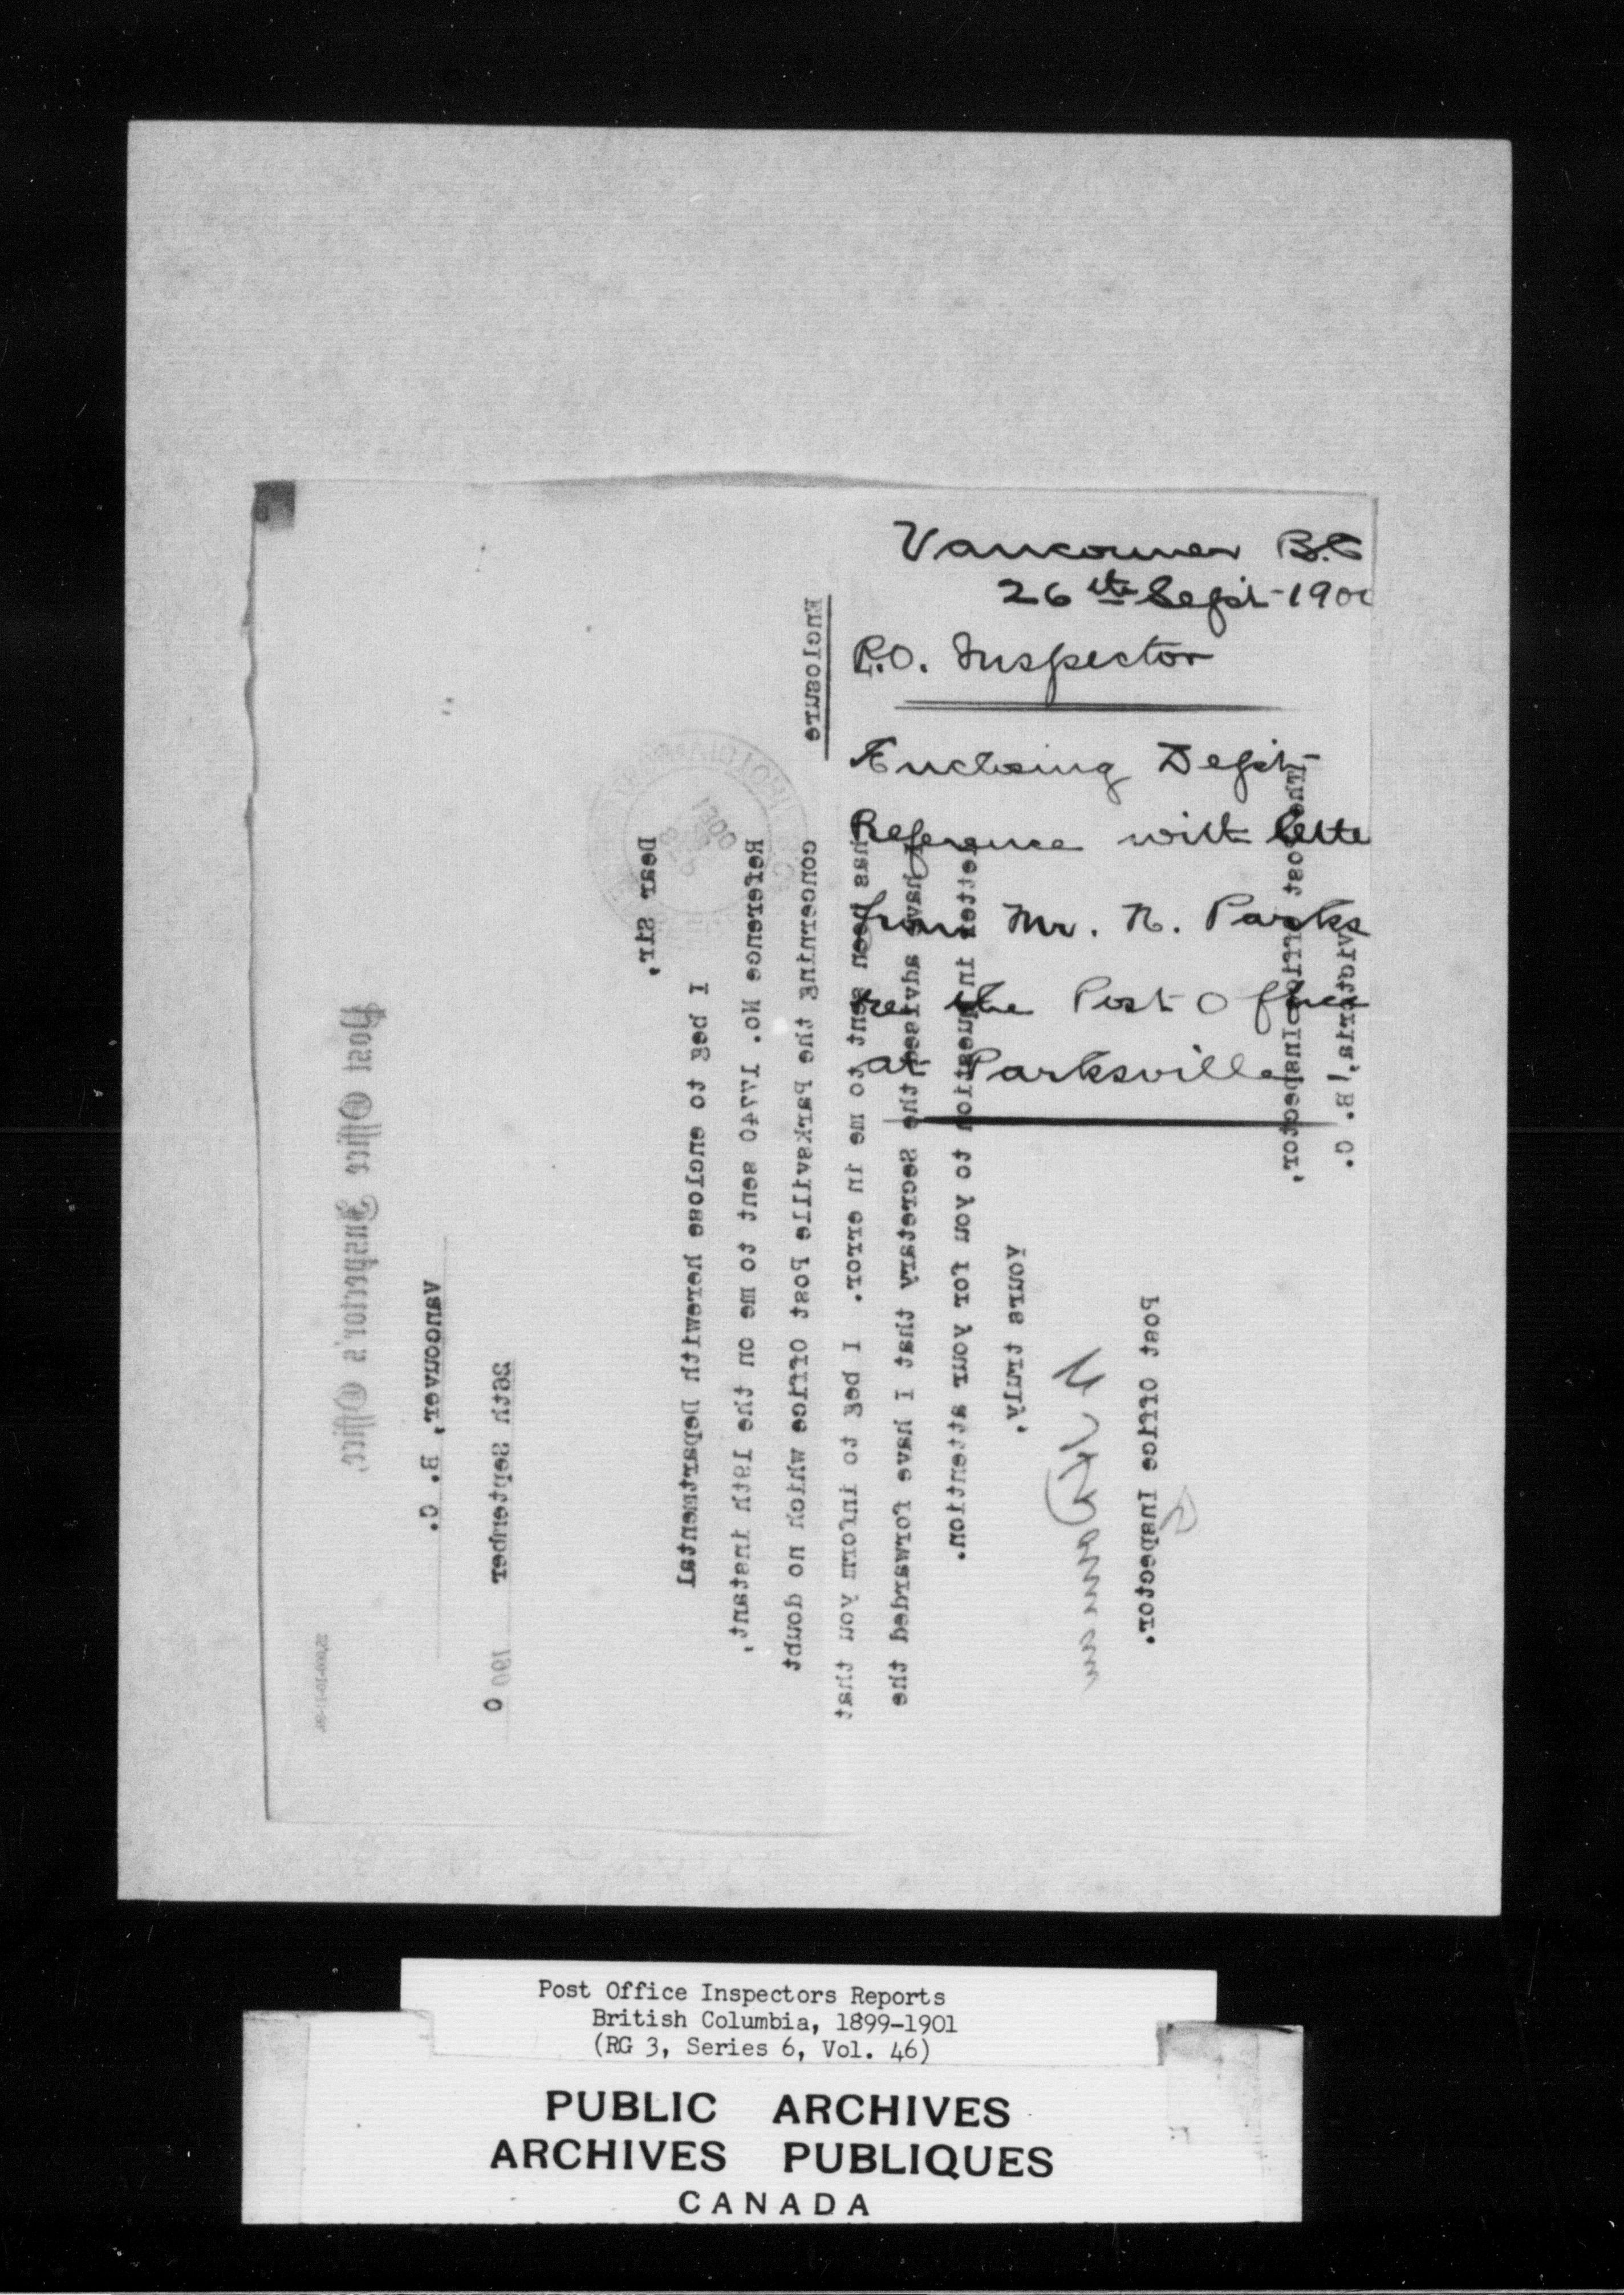 Vancouver B.C
26th Sept 1900
P.O. Inspector
Enclosing Dept
Reference with lette
from Mr. N. Parks
re the Post Office
at Parksville
Post Office Inspector's Office,
Vancouver, B. C.
26th September 1900
Dear Sir,
I beg to enclose herewith Departmental
Reference No. 17740 sent to me on the 19th instant,
concerning the Parksville Post Office which no doubt
has been sent to me in error. I beg to inform you that
I have advised the Secretary that I have forwarded the
letter in question to you for your attention.
Yours truly,
Post Office Inspector.
The Post Office Inspector,
Victoria, B. C.
Enclosure
Post Office Inspectors Reports
British Columbia, 1899-1901
(RG 3, Series 6, Vol. 46)
PUBLIC ARCHIVES
ARCHIVES PUBLIQUES
CANADA